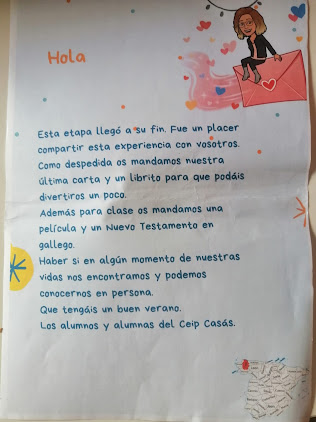 Hola
Esta etapa llegó a su fin. Fue un placer
compartir esta experiencia con vosotros.
Como despedida os mandamos nuestra
última carta y un librito para que podáis
divertiros un poco.
Además para clase os mandamos una
película y un Nuevo Testamento en
gallego.
Haber si en algún momento de nuestras
vidas nos encontramos y podemos
conocernos en persona.
Que tengáis un buen verano.
Los alumnos y alumnas del Ceip Casás.